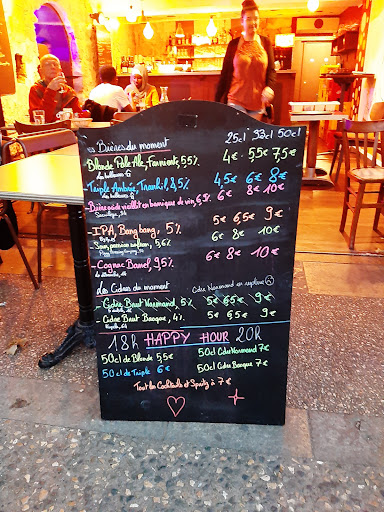 Bières du moment 25cl 33cl 50cl
Blonde Pale Ale, 5,5% 4€ 5,5€ 7,5€
Triple Ambrée, 8,5% 4,5€ 6€ 8€
Bière acide vieillit en barrique de vin, 6,5% 6€ 8€ 10€
IPA, Bang bang, 5% 5€ 6,5€ 9€
Sour, 5,6% 6€ 8€ 10€
Cognac Barrel, 9,5% 6€ 8€ 10€
Les Cidres du moment Cidre Normand en rupture
Cidre Brut Normand, 5% 5€ 6,5€ 9€
Cidre Brut Basque, 4% 5€ 6,5€ 9€
18h HAPPY HOUR 20h
50cl de Blonde 5,5€ 50cl Cidre Normand 7€
50cl de Triple 6€ 50cl Cidre Basque 7€
Tout les Cocktails et Spritz à 7€